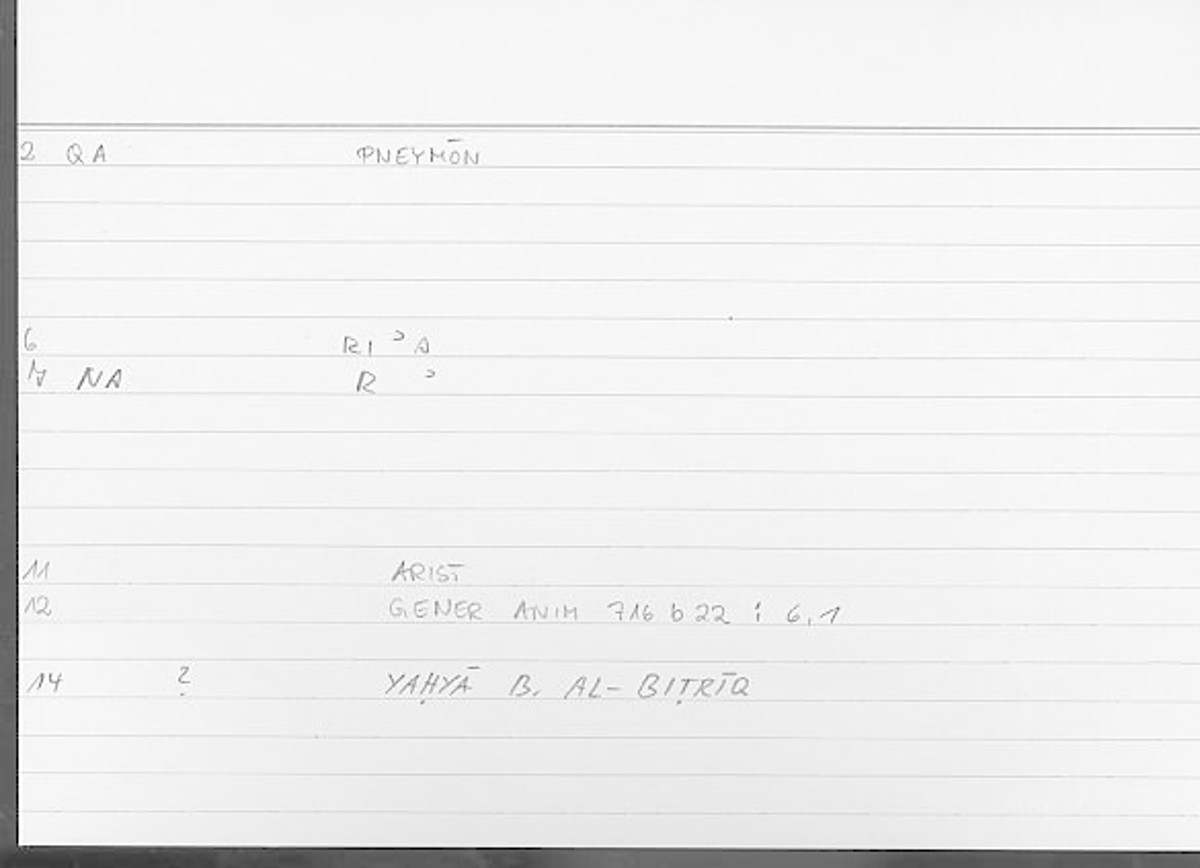 2 QA PNEYMŌN
6 RIʾA
7 NA R ʾ
11 ARIST
12 GENER ANIM 716 b 22 : 6,1
14 ? YAḤYĀ B. AL-BIṬRĪQ